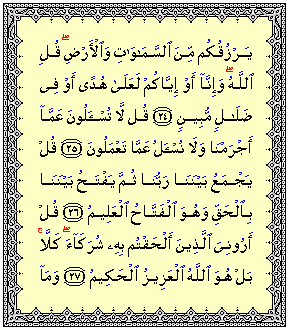 يَرْزُقُكُم مِّنَ ٱلسَّمَٰوَٰتِ وَٱلْأَرْضِ ۖ قُلِ
ٱللَّهُ ۖ وَإِنَّآ أَوْ إِيَّاكُمْ لَعَلَىٰ هُدًى أَوْ فِى
ضَلَٰلٍ مُّبِينٍ ﴿٢٤﴾ قُل لَّا تُسْـَٔلُونَ عَمَّآ
أَجْرَمْنَا وَلَا نُسْـَٔلُ عَمَّا تَعْمَلُونَ ﴿٢٥﴾ قُلْ
يَجْمَعُ بَيْنَنَا رَبُّنَا ثُمَّ يَفْتَحُ بَيْنَنَا
بِٱلْحَقِّ وَهُوَ ٱلْفَتَّاحُ ٱلْعَلِيمُ ﴿٢٦﴾ قُلْ
أَرُونِىَ ٱلَّذِينَ أَلْحَقْتُم بِهِۦ شُرَكَآءَ ۖ كَلَّا ۚ
بَلْ هُوَ ٱللَّهُ ٱلْعَزِيزُ ٱلْحَكِيمُ ﴿٢٧﴾ وَمَآ